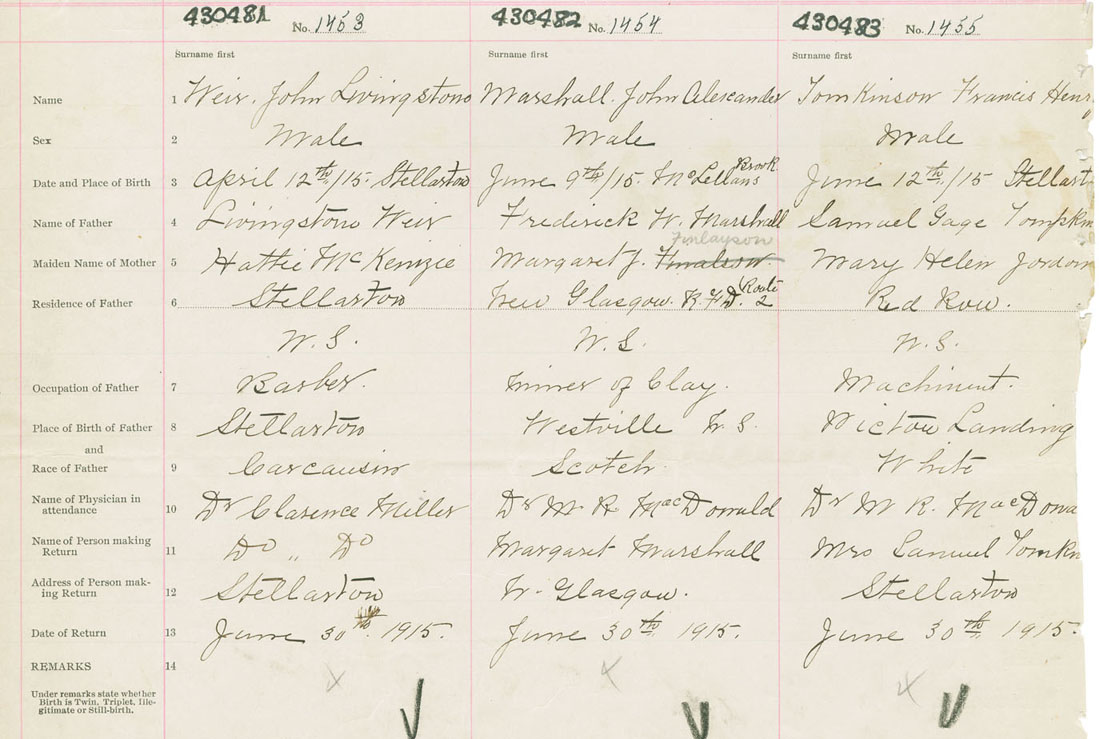 430481 No. 1453 430482 No. 1454 430483 No. 1455
Surname first Surname first Surname first
Name 1 Weir, John Livingstone Marshall. John Alexander Tomkinson Francis Henr
Sex 2 Male Male Male
Brook
Date and Place of Birth 3 April 12th/15. Stellarton June 9th/15. McLellans June 12th/15 Stellart
Name of Father 4 Livingstone Weir Frederick W. Marshall Samuel Gage Tompkin
Finlayson
Maiden Name of Mother 5 Hattie McKenzie Margaret J. Mary Helen Jordon
Route
Residence of Father 6 Stellarton New Glasgow. R.F.D. 2 Red Row.
N.S. N.S. N.S.
Occupation of Father 7 Barber. Miner of Clay. Machinist.
Place of Birth of Father 8 Stellarton Westville N.S. Pictou Landing
and
Race of Father 9 Carcausin Scotch White
Name of Physician in
attendance 10 Dr Clarence Miller Dr M. R. MacDonald Dr M R. MacDona
Name of Person making
Return 11 Do „ Do Margaret Marshall Mrs Samuel Tomkn
Address of Person mak-
ing Return 12 Stellarton N. Glasgow. Stellarton
Date of Return 13 June 30th. 1915. June 30th 1915. June 30th 1915.
REMARKS 14
Under remarks state whether
Birth is Twin, Triplet, Ille-
gitimate or Still-birth.